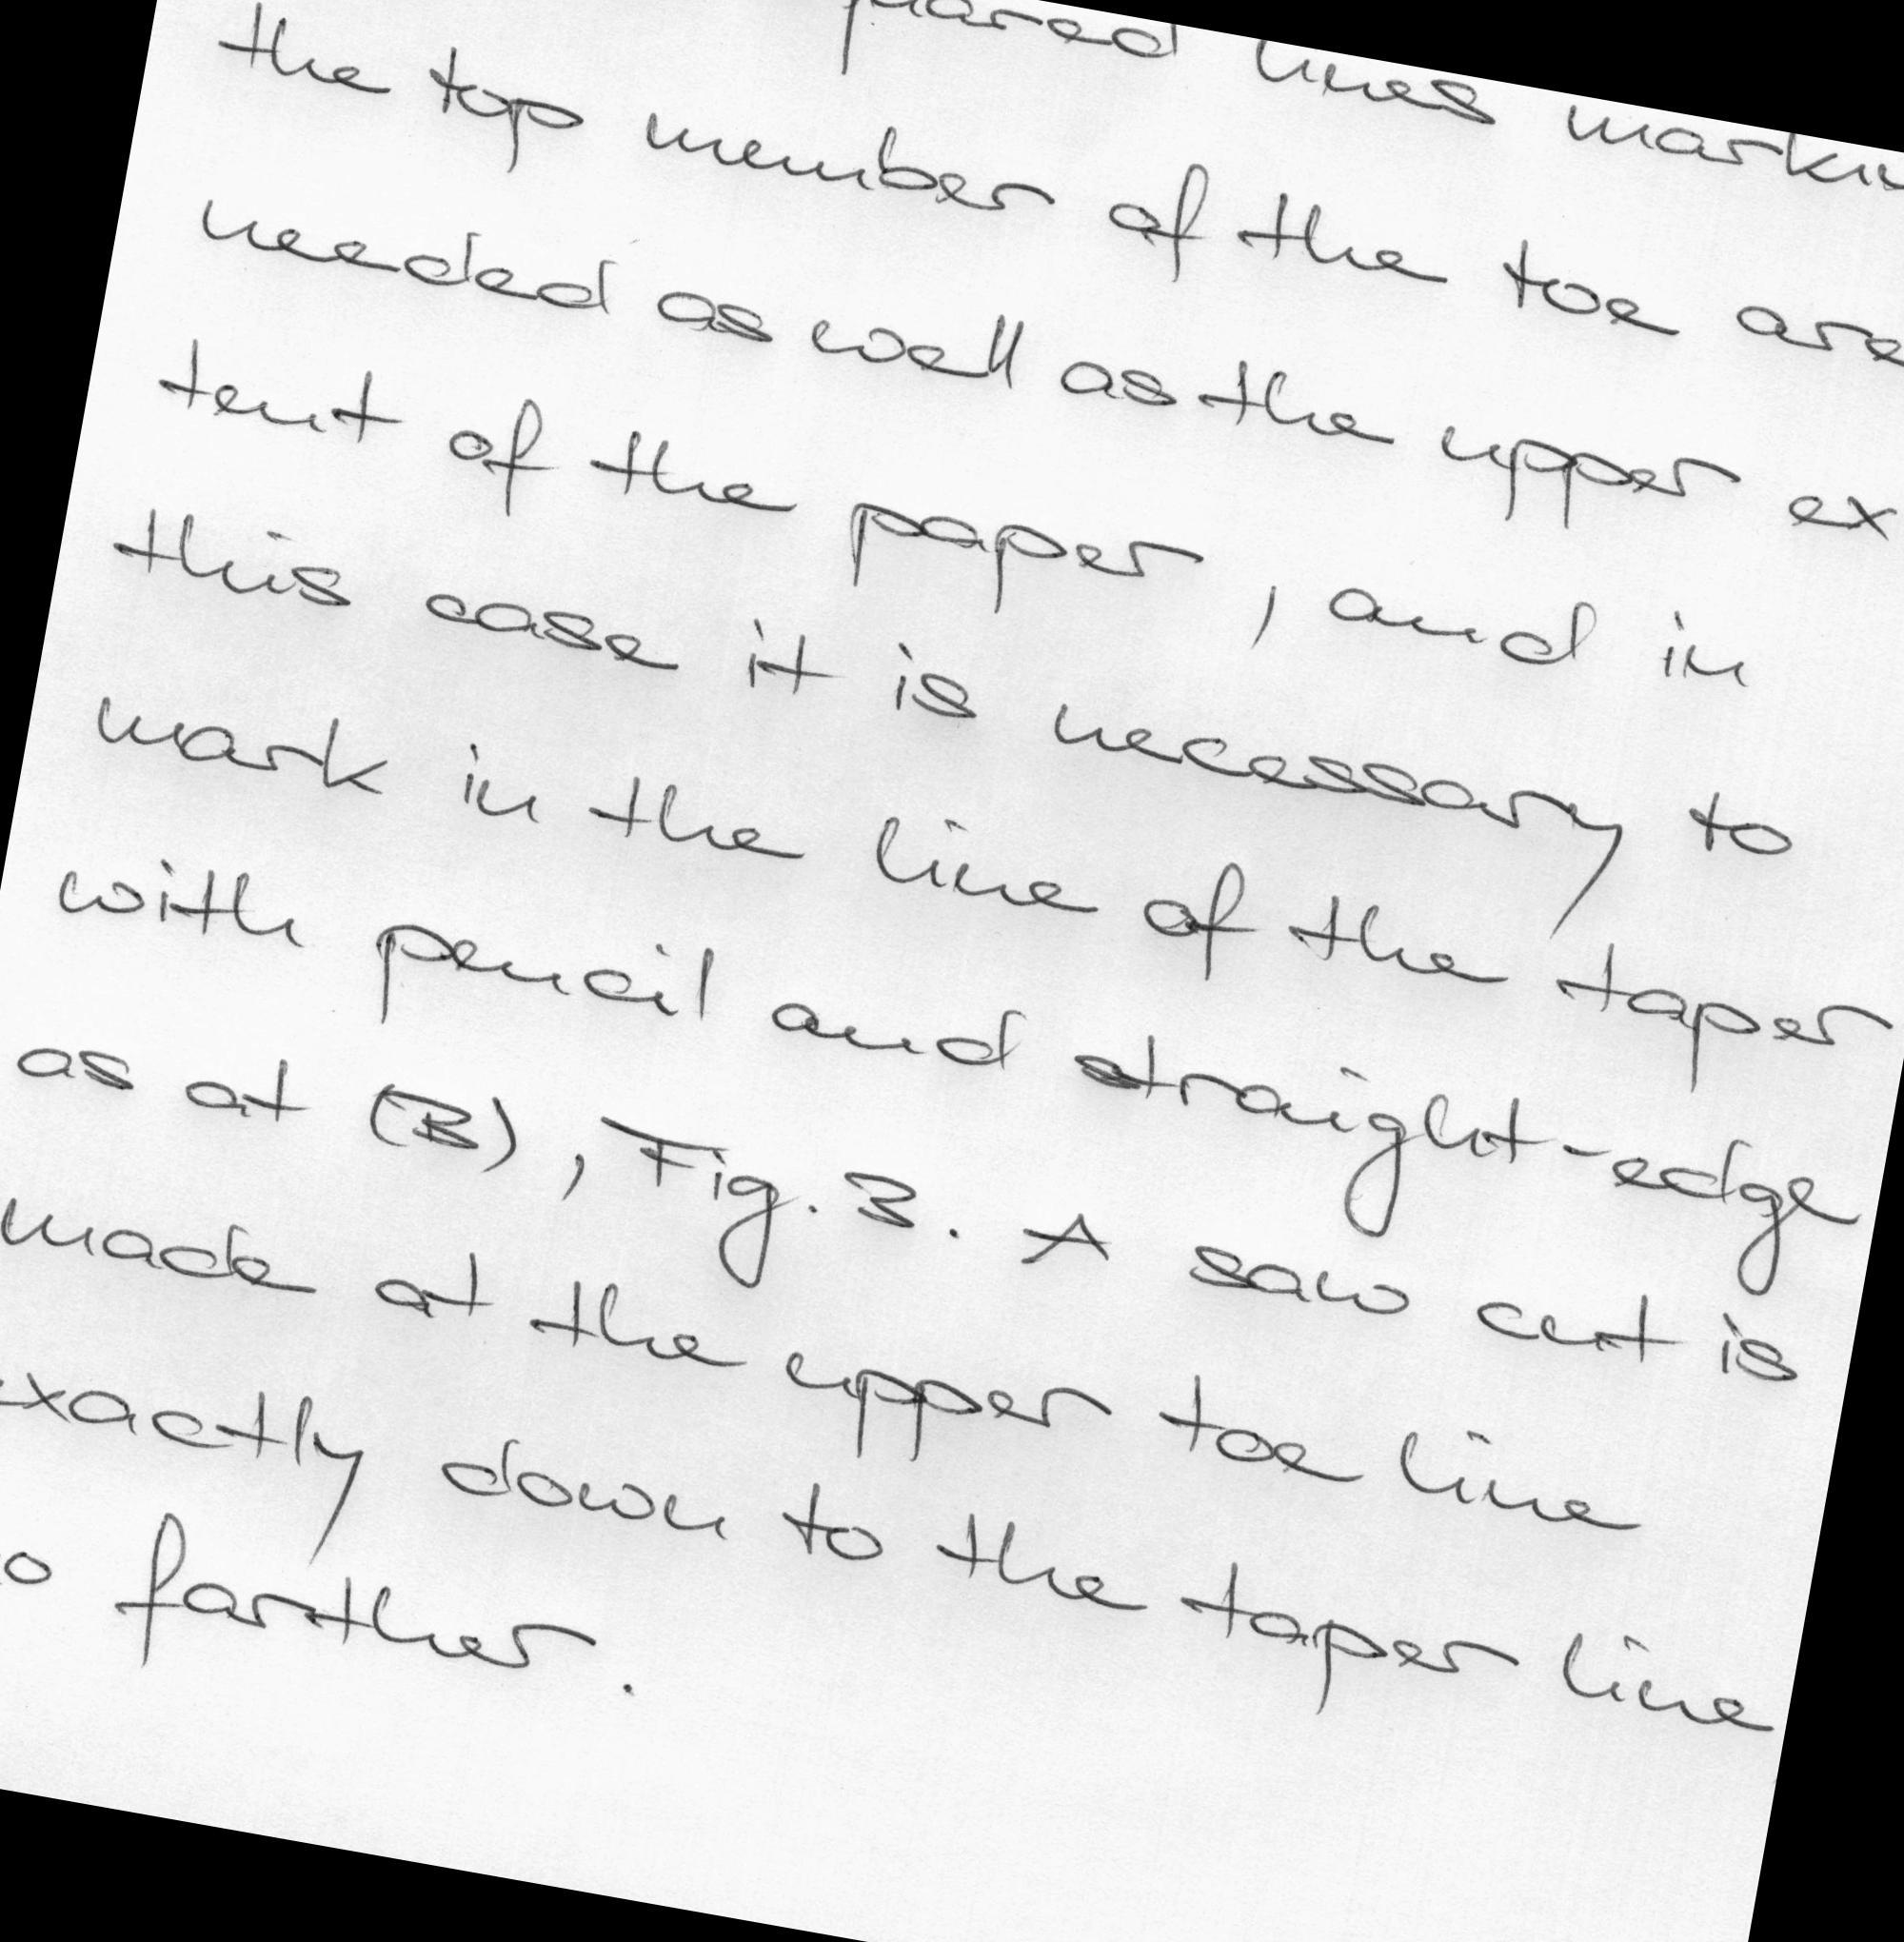 lines
the top member of the toe are
needed as well as the upper ex
tent of the paper, and in
this case it is necessary to
mark in the line of the taper
with pencil and straight-edge
as at (B), Fig. 3. A saw cut is
made at the upper toe line
exactly down to the taper line
farther.